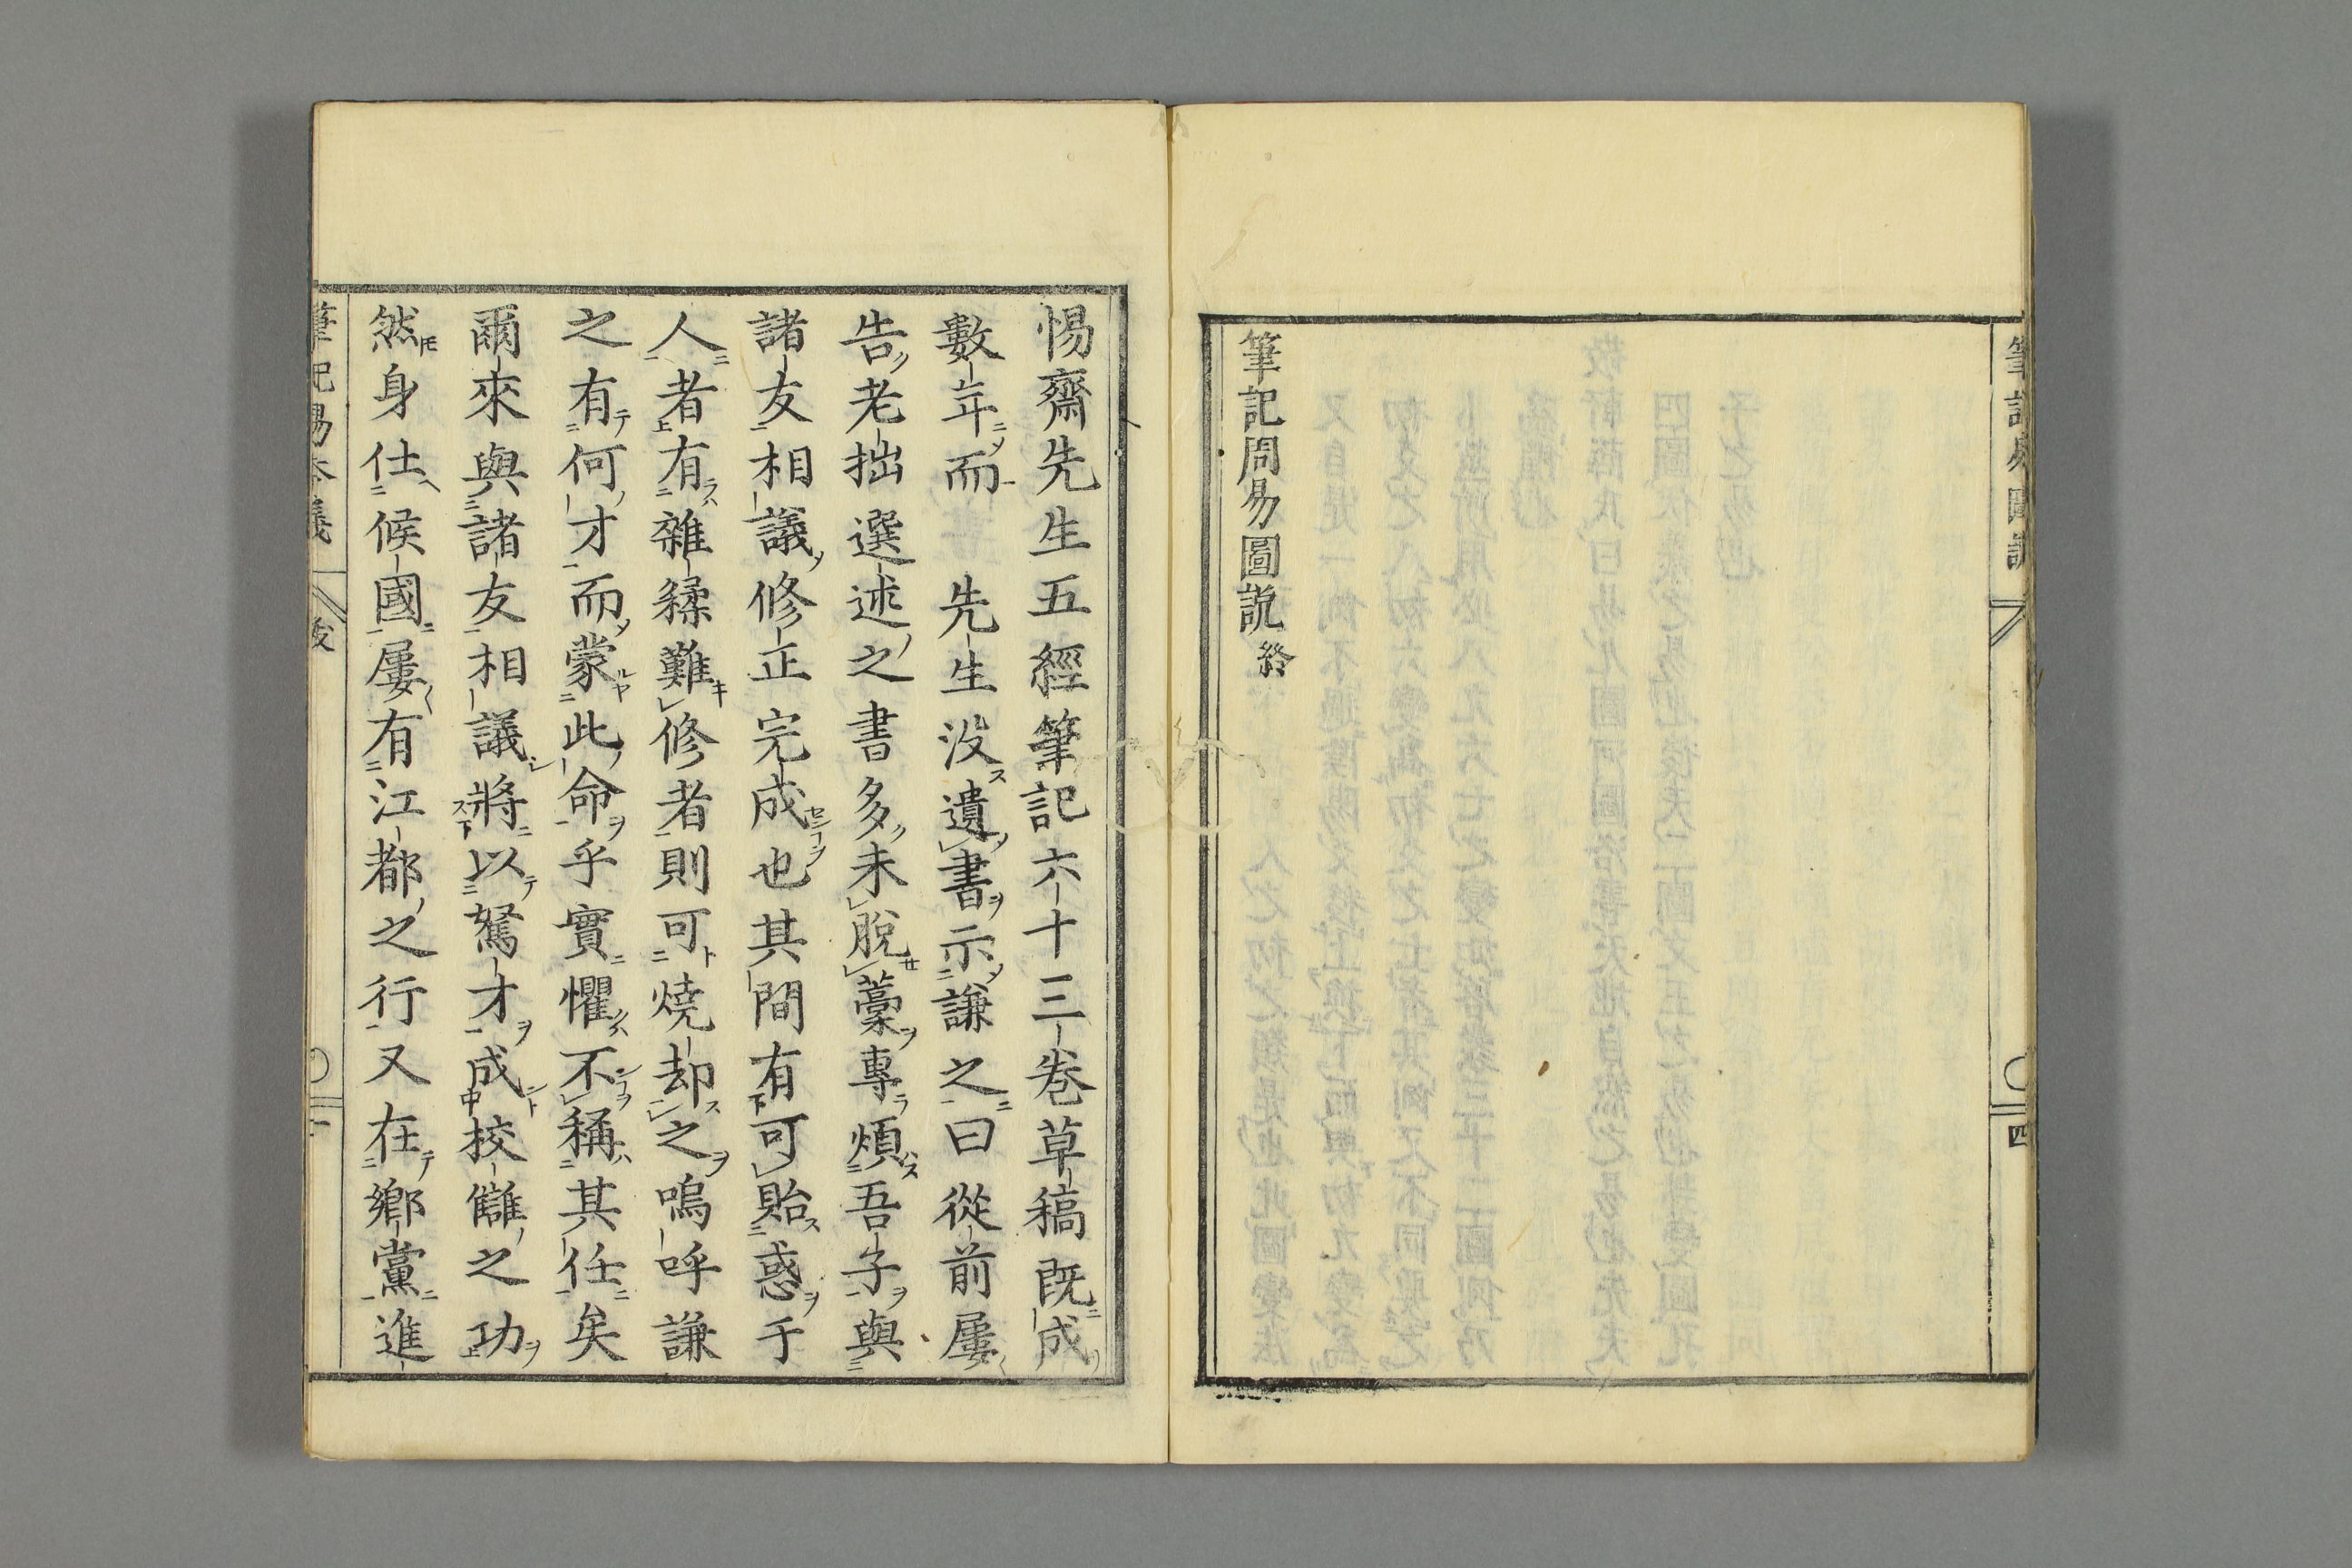 筆記問易圖説終
惕齋先生五經筆記六十三卷草稿既成
數年而 先生没遺書示謙之曰從前屢
告老拙選述之書多未脱藁專煩吾子與
諸友相議修正完成也其間有可貽惑于
人者有雜糅難修者則可燒却之嗚呼謙
之有何才而蒙此命乎實懼不稱其任矣
爾來與諸友相議將以駑才成挍讎之功
然身仕候國屢有江都之行又在鄉黨進